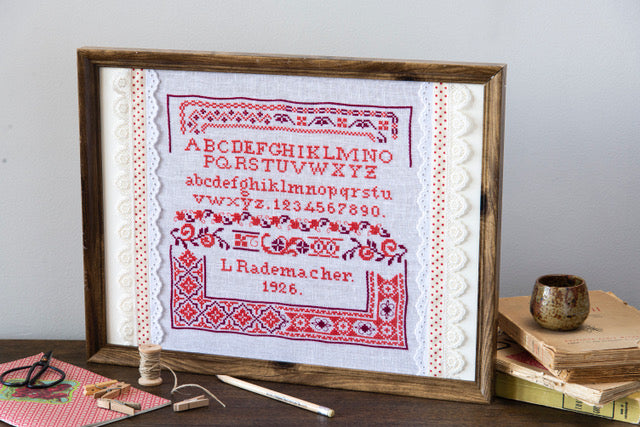 ABCDEFGHIKLMNO
PQRSTUVWXYZ
abcdefghiklmnopqrstu
vwxyz.1234567890.
L Rademacher.
1926.